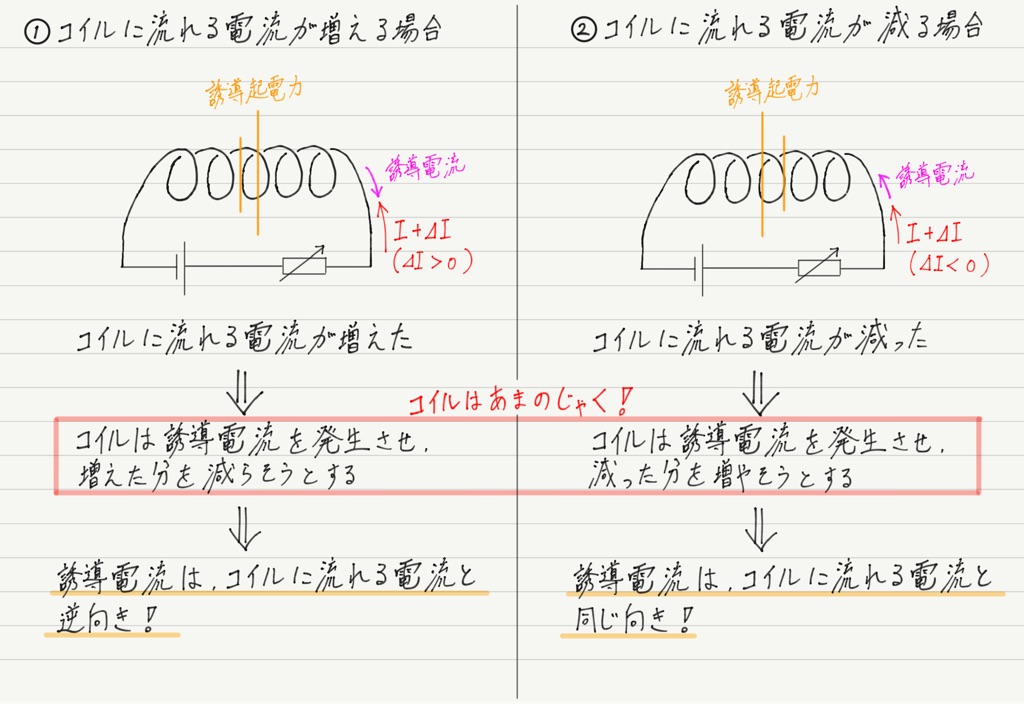 ① コイルに流れる電流が増える場合
誘導起電力
誘導電流
I+ΔI
(ΔI>0)
コイルに流れる電流が増えた
⇓
コイルはあまのじゃく!
コイルは誘導電流を発生させ,
増えた分を減らそうとする
⇓
誘導電流は,コイルに流れる電流と
逆向き!
② コイルに流れる電流が減る場合
誘導起電力
誘導電流
I+ΔI
(ΔI<0)
コイルに流れる電流が減った
⇓
コイルは誘導電流を発生させ,
減った分を増やそうとする
⇓
誘導電流は,コイルに流れる電流と
同じ向き!